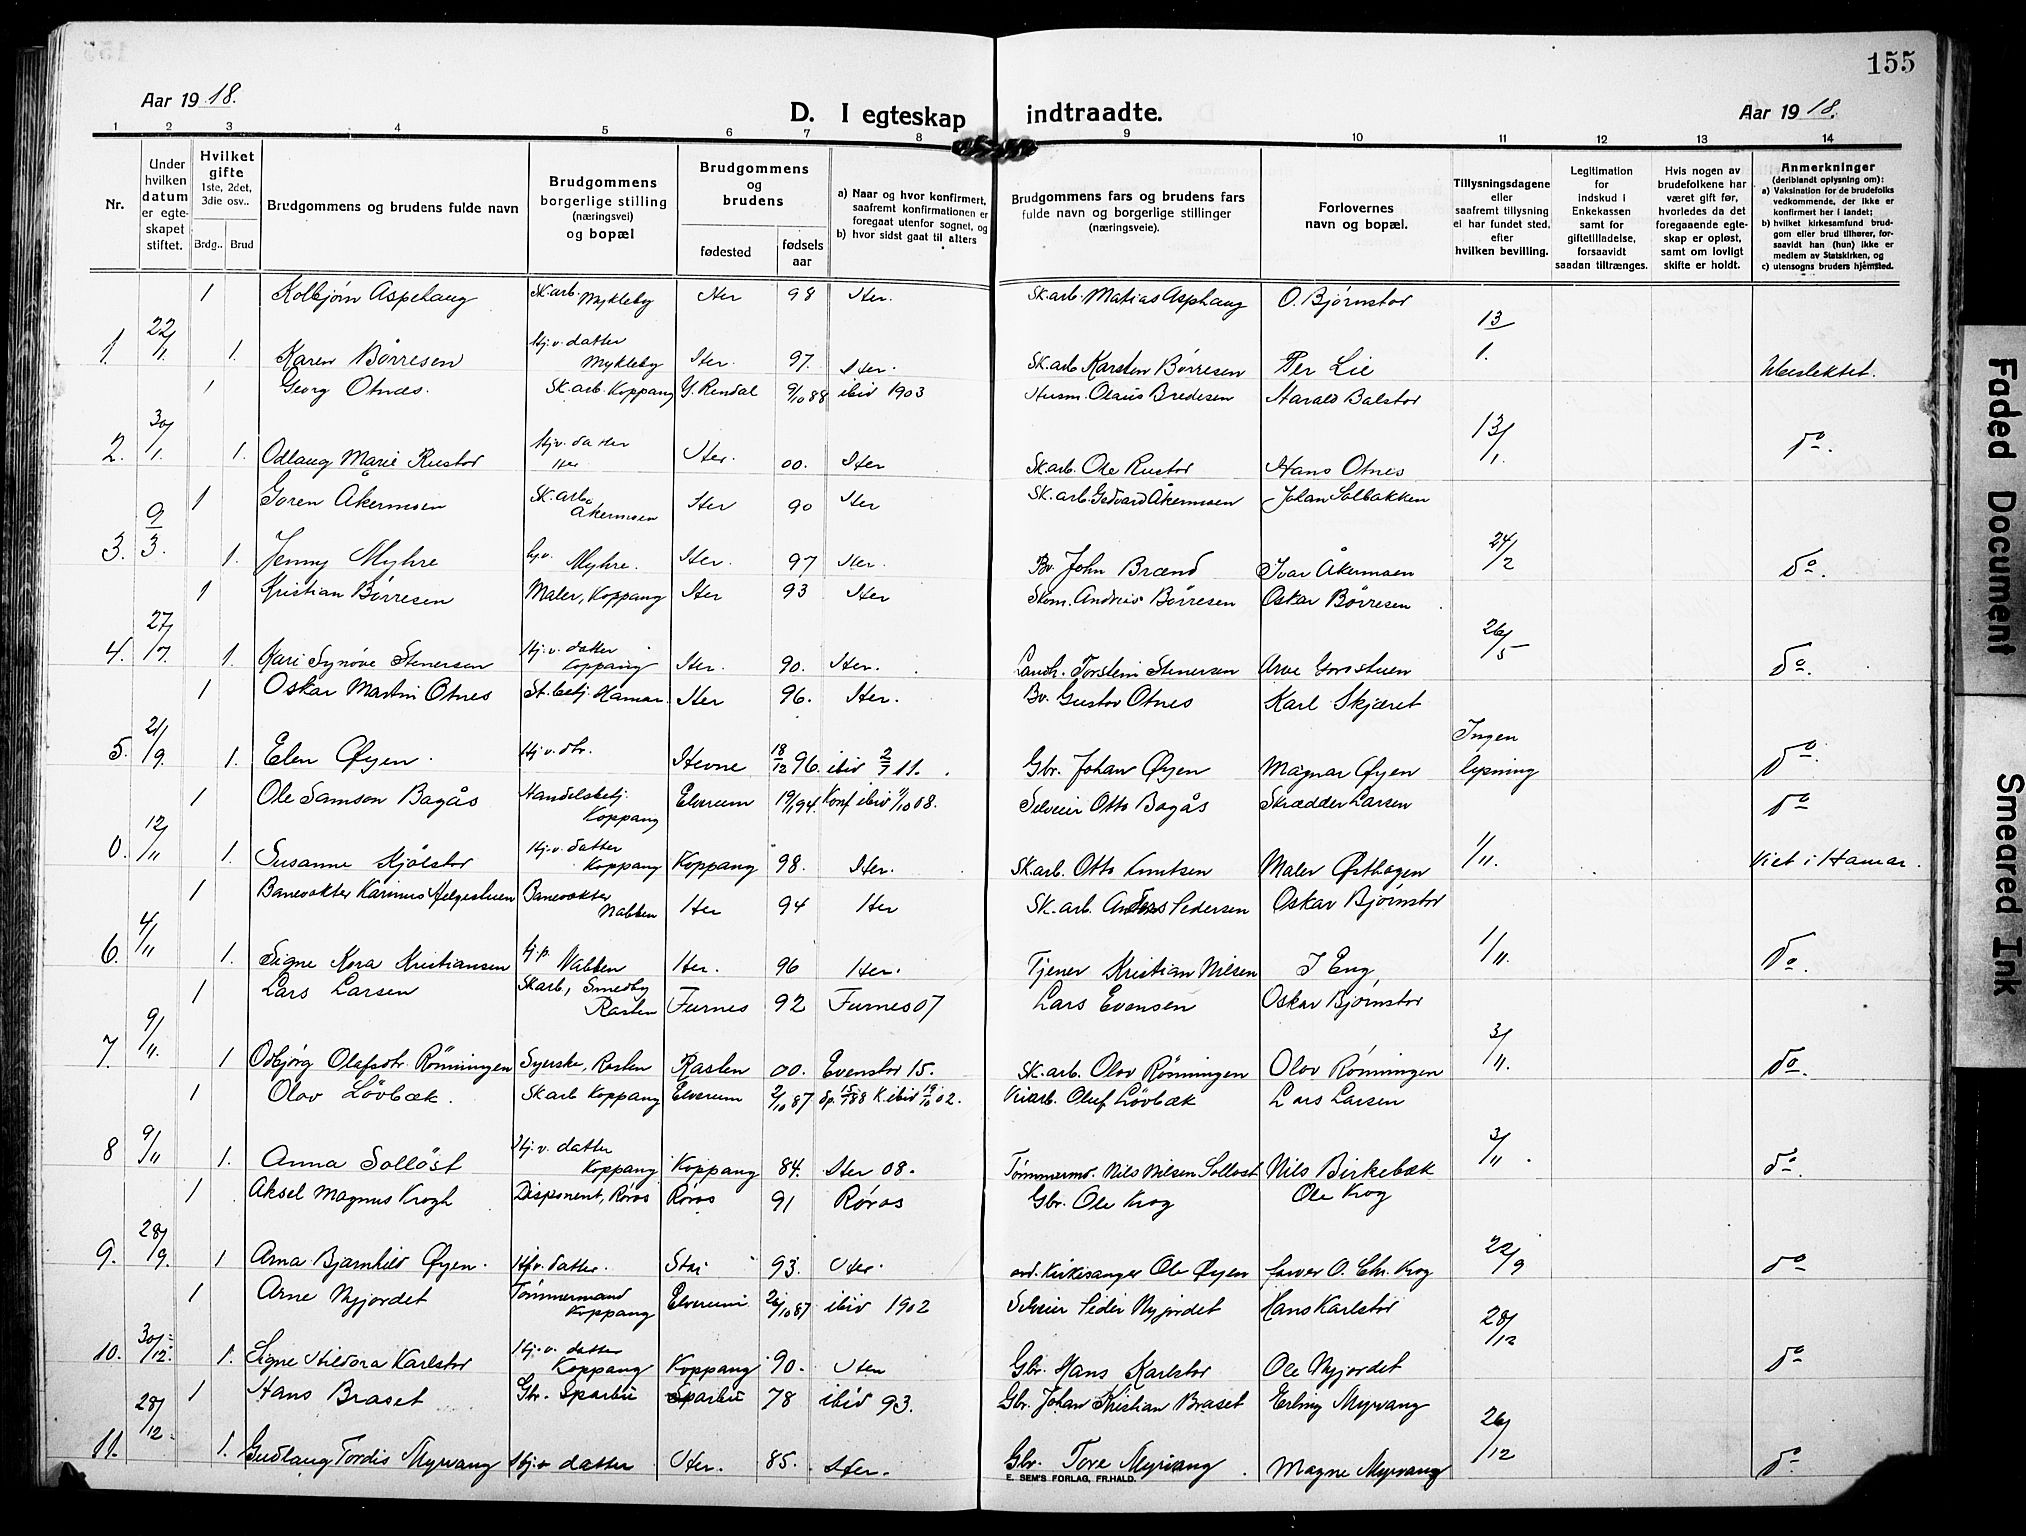 155
Aar 1918.
D. I egteskap indtraadte.
Aar 1918.
1 2 3 4 5 6 7 8 9 10 11 12 13 14
Nr.
Under hvilken datum er egteskapet stiftet.
Hvilket gifte 1ste, 2det, 3die osv..
Brdg.. Brud
Brudgommens og brudens fulde navn
Brudgommens borgerlige stilling (næringsvei) og bopæl
Brudgommens og brudens
fødested
fødsels aar
a) Naar og hvor konfirmert, saafremt konfirmationen er foregaat utenfor sognet, og
b) hvor sidst gaat til alters
Brudgommens fars og brudens fars fulde navn og borgerlige stillinger (næringsveie).
Forlovernes navn og bopæl.
Tillysningsdagene eller saafremt tillysning ei har fundet sted, efter hvilken bevilling.
Legitimation for indskud i Enkekassen samt for giftetilladelse, forsaavidt saadan tiltrænges.
Hvis nogen av brudefolkene har været gift før, hvorledes da det foregaaende egteskap er opløst, samt om lovligt skifte er holdt.
Anmerkninger (deriblandt oplysning om):
a) Vaksination for de brudefolks vedkommende, der ikke er konfirmert her i landet;
b) hvilket kirkesamfund brudgom eller brud tilhører, forsaavidt han (hun) ikke er medlem av Statskirken, og
c) utensogns bruders hjemsted.
1 Kolbjørn Aspehaug Sk.arb. Mykleby Her 98 Her. Sk.arb. Matias Asphaug O. Bjørnstor
1. 22/1 1. Karen Børresen Hj.v. datter Mykleby Her. 97. Her. Sk.arb Karsten Børresen Per Lie 13/1. Ubeslektet.
1 Georg Otnes. Sk.arb. Koppang Y. Rendal 9/10 88 ibid 1903 Husm. Olaus Bredesen Harald Balstor
2. 30/1. 1. Odlaug Marie Rustor Hj.v. datter Her Her. 00. Her Sk.arb. Ole Rustor Hans Otnes 13/1. do.
1 Goren Åkermoen Sk.arb. Åkermoen Her 90 Her Sk.arb. Gedvard Åkermoen Johan Solbakken
3. 9/3. 1. Jenny Myhre hj.v. Myhre. Her. 97 Her. Bv. John Brænd Ivar Åkermoen 24/2 do.
1 Kristian Børresen Maler, Koppang Her 93 Her Skom. Andreis Børresen Oskar Børresen
4. 27/7. 1. Kari Synøve Stenersen Hj.v. datter Koppang Her. 90. Her. Landh. Torstein Stenersen Arve 26/5 do.
1 Oskar Martin Otnes St.betj. Hamar. Her 96. Her. Bv. Gustav Otnes Karl Skjæret
5. 21/9. 1. Elen Øyen. Hj.v. dtr. Hevne 18/12 96. ibid 2/7 11. Gbr. Johan Øyen Magnar Øyen Ingen lysning do.
1 Ole Samson Bagås Handelsbetj. Koppang Elverum 19/1 94. Konf ibid 4/10 08. Selveier Otto Bagås Skrædder Larsen do
0. 12/11 1. Susanne Kjølstor Hj.v. datter Koppang Koppang 98. Her. Sk.arb. Otto Knutsen Maler Østhagen 1/11. Viet i Hamar.
1 Banevokter Karinus Helgestuen Banevokter Nabben Her 94 Her Sk.arb. Anders Pedersen Oskar Bjørnstor
6. 4/11 1. Signe Kora Kristiansen hj.p. Nabben Her. 96 Her. Tjener Kristian Nilsen J Eng 1/11. do.
1 Lars Larsen Sk.arb, Smedby Rasten Furnes 92 Furnes 07 Lars Evensen Oskar Bjørnstor
7. 9/11. 1 Odbjørg Olafsdtr. Rönningen Syerske, Rasten Rasten 00. Evenstor 15. Sk.arb. Olov Rönningen Olov Rønningen 3/11. do.
1 Olov Lövbæk. Sk.arb Koppang Elverum 2/10 87 Dp. 15/1 88 K. ibid 19/10 02. Oluf Lövbæk Lars Larsen
8 9/11 1. Anna Solløst Hj.v. datter Koppang Koppang 84. Her 08. Tømmermd. Nils Nilsen Solløst Nils Birkebæk 3/11. do.
1 Aksel Magnus Krogh Disponent, Røros Røros 91 Røros Gbr. Ole Krog Ole Krog
9. 28/9. 1 Arna Bjarnhild Øyen. Hj.v. datter. Stai 93. Her. Kirkesanger Ole Øyen farver O. Chr. Krog 22/9 do
1 Arne Nyjordet Tømmermand Koppang Elverum 26/10 87 ibid 1902 Selveier Peder Nyjordet Hans Karlstor
10. 30/12. 1. Signe Hildora Karlstor Hj.v. datter Koppang Koppang 90. Her Gbr. Hans Karlstor Ole Nyjordet 28/12 do
1 Hans Braset Gbr. Sparbu Sparbu 78 ibid 93. Gbr. Johan Kristian Braset Erling Myrvang
11. 28/12. 1. Gudlaug Tordis Myrvang Hj.v datter Her. 85. Her. Gbr. Tore Myrvang Magne Myrvang 26/12 do.
E. SEM'S FORLAG, FR.HALD.
Faded Document
Smeared Ink